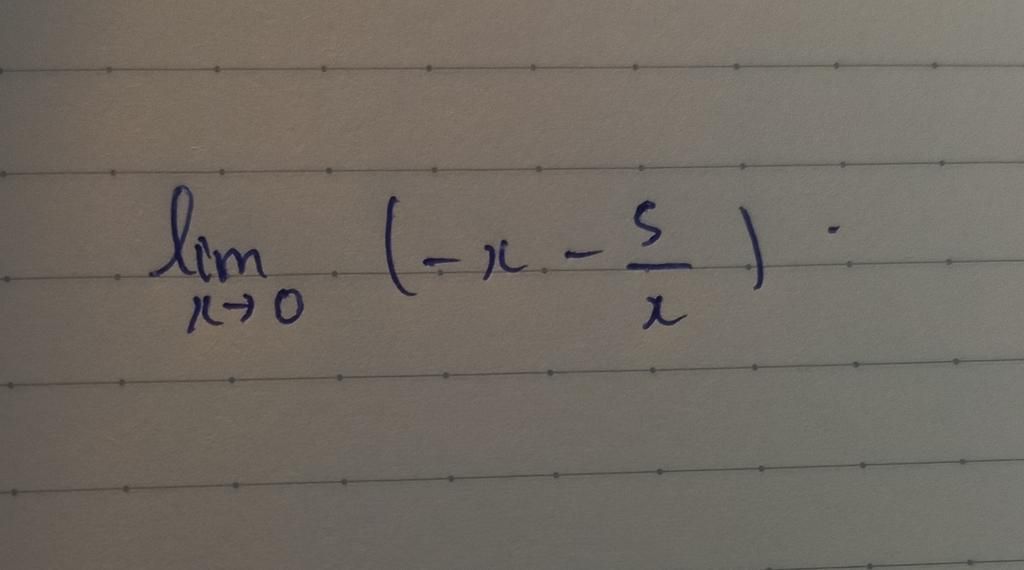 lim x→0 (-x - 5/x) .